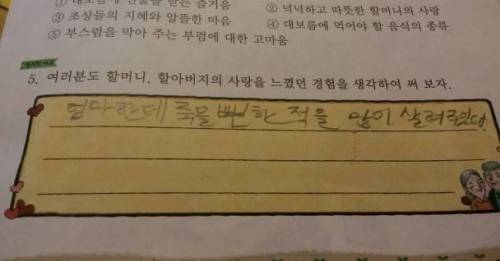 ① 대보름에 선물을 받는 즐거움 ② 넉넉하고 따뜻한 할머니의 사랑
③ 조상들의 지혜와 알뜰한 마음 ④ 대보름에 먹어야 할 음식의 종류
⑤ 부스럼을 막아 주는 부럼에 대한 고마움
5. 여러분도 할머니, 할아버지의 사랑을 느꼈던 경험을 생각하여 써 보자.
엄마한테 죽을뻔한 적을 많이 살려주셨다.